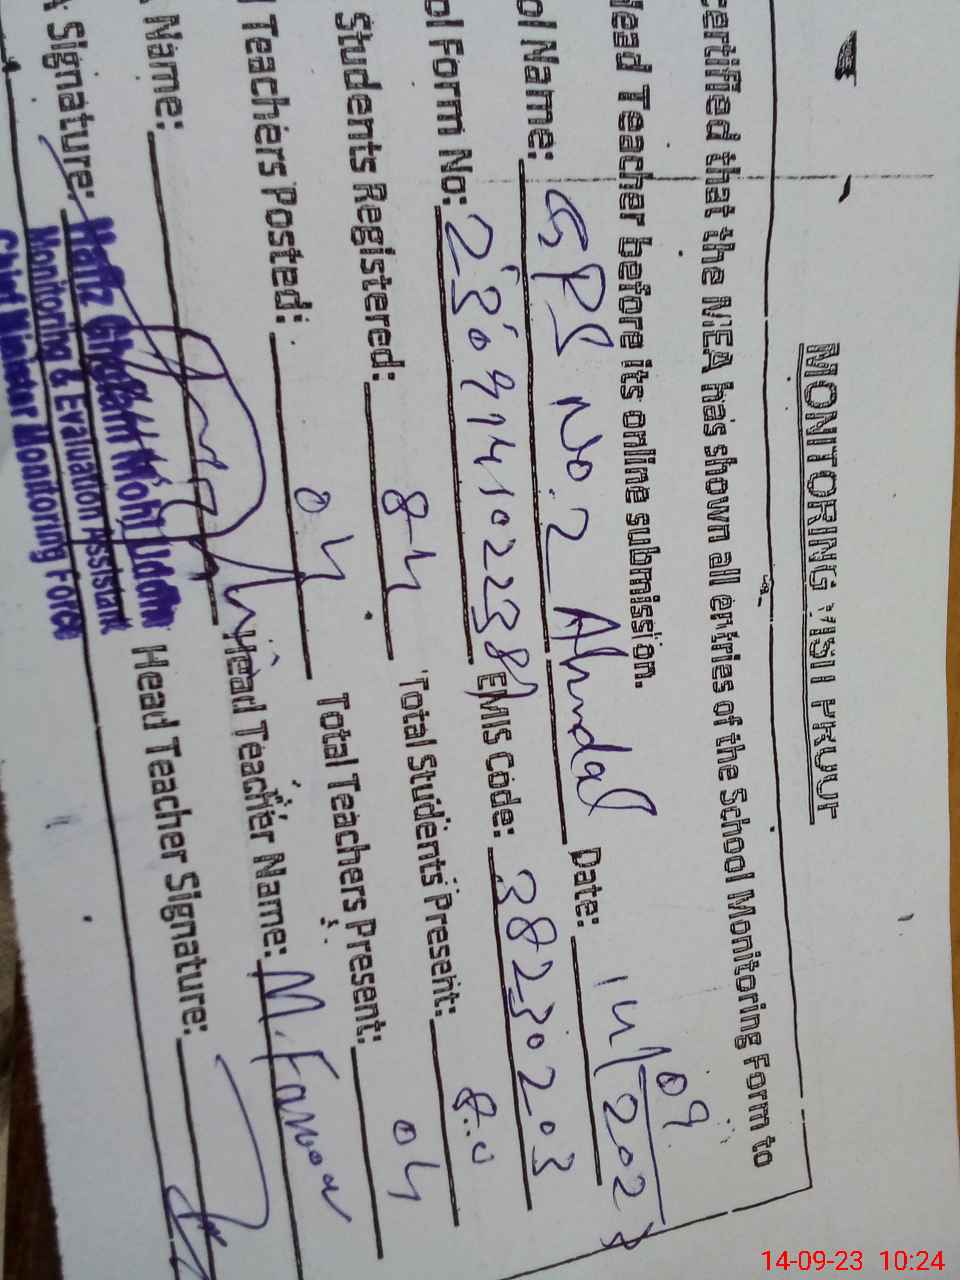 MONITORING VISIT PROOF
certified that the MEA has shown all entries of the School Monitoring Form to
Head Teacher before its online submission.
ol Name: GPS No 2 Ahmdal Date: 14/09/2023
ol Form No: EMIS Code: 38230203
Students Registered: 84 Total Students Present: 80
l Teachers Posted: 04 Total Teachers Present: 04
Name: Head Teacher Name: M. Farooq
Signature: Head Teacher Signature:
Hafiz Ghulam Mohi Uddin
Monitoring & Evaluation Assistant
Chief Minister Monitoring Force
14-09-23 10:24